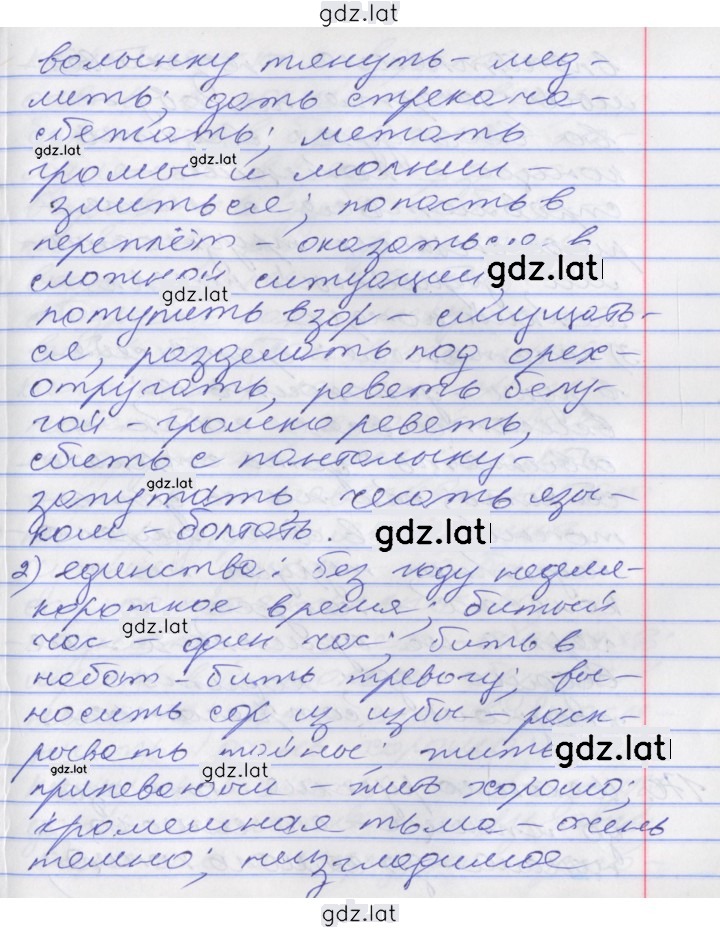 gdz.lat
волынку тянуть – мед-
лить; дать стрекача –
сбежать; метать
gdz.lat gdz.lat
громы и молнии –
злиться; попасть в
переплёт – оказаться в
gdz.lat
сложной ситуации,
gdz.lat
потупить взор – смущать-
ся, разделать под орех –
отругать, реветь белу-
гой – громко реветь,
сбить с панталыку –
gdz.lat
запутать, чесать язы-
ком – болтать.
gdz.lat
2) единства: без году неделя –
короткое время; битый
gdz.lat
час – один час; бить в
набат – бить тревогу; вы-
носить сор из избы – раск-
рывать тайны; жить
gdz.lat
gdz.lat gdz.lat
припеваючи – жить хорошо;
кромешная тьма – очень
темно; неизгладимое
gdz.lat